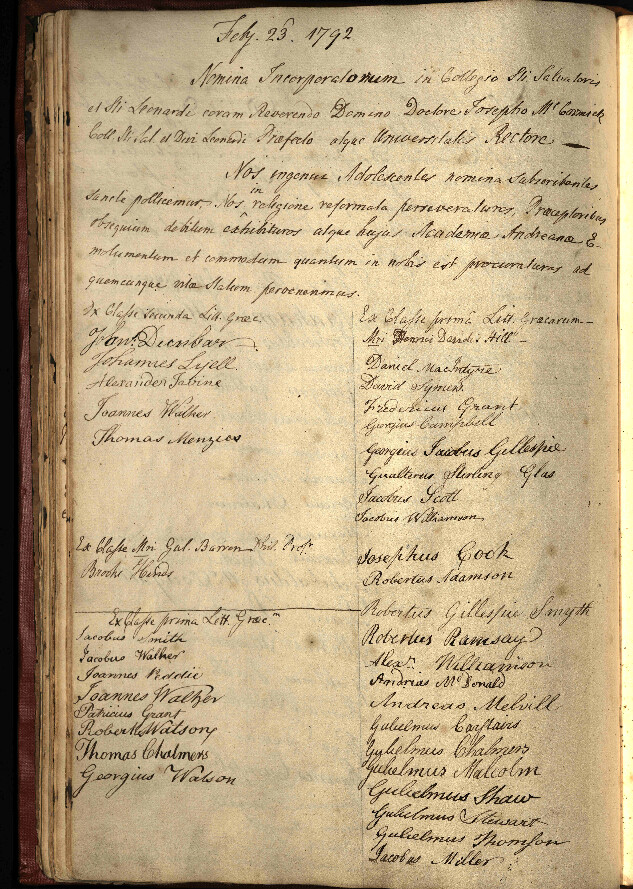 Feby. 23. 1792
Nomina Incorporatorum in Collegio Sti Salvatoris
et Sti Leonardi coram Reverendo Domino Doctore Josepho McCormick
Coll. Sti Sal. et Divi Leonardi Praefecto atque Universitatis Rectore
Nos ingenui Adolescentes nomina subscribentes
sancte pollicemur, Nos in religione reformata perseveraturos, Praeceptoribus
obsequium debitum exhibituros atque hujus Academiae Andreanae E-
molumentum et commodum quantum in nobis est procuraturos ad
quemcunque vitae statum pervenerimus.
Ex Classe secunda Litt. Graec.
Dunbar
Johannes Lyell
Alexander Jabine
Joannes Walker
Thomas Menzies
Ex Classe Mri Gul. Barron Phil. Profr.
Brooks Hinds
Ex Classe prima Litt. Graecm
Jacobus Smith
Jacobus Walker
Joannes Peddie
Joannes Walker
Patricius Grant
Robert Watson
Thomas Chalmers
Georgius Watson
Ex Classe prima Litt. Graecarum
Mri Henrici Davidis Hill
Daniel MacIntyre
David Symers
Fredericus Grant
Georgius Campbell
Georgius Jacobus Gillespie
Gualterus Stirling Glas
Jacobus Scott
Jacobus Williamson
Josephus Cook
Robertus Adamson
Robertus Gillespie Smyth
Robertus Ramsay
Alexr. Williamson
Andrias McDonald
Andreas Melvill
Gulielmus Carstairs
Gulielmus Chalmers
Gulielmus Malcolm
Gulielmus Shaw
Gulielmus Stewart
Gulielmus Thomson
Jacobus Miller